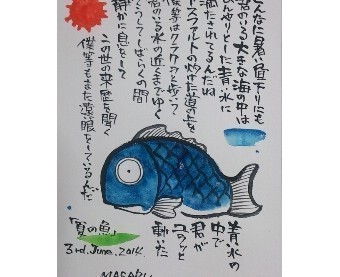 こんなに暑い昼下りにも
君のいる大きな海の中は
ひんやりとした青い水に
満たされてるんだね
アスファルトの灼けた道の上を
僕等はフラフラと歩いて
君のいる水の近くまでゆく
そうしてしばらくの間
静かに息をして
この世の来歴を聞く
僕等もまた眼をしているんだ
青い水の
中で
君が
動いた
「夏の魚」
3rd. June. 2014.
MASARU